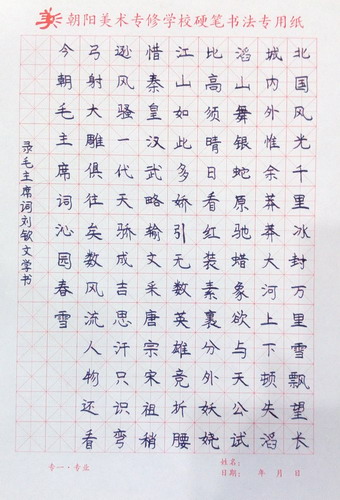 朝阳美术专修学校硬笔书法专用纸
北国风光千里冰封万里雪飘望长
城内外惟余莽莽大河上下顿失滔
滔山舞银蛇原驰蜡象欲与天公试
比高须晴日看红装素裹分外妖娆
江山如此多娇引无数英雄竞折腰
惜秦皇汉武略输文采唐宗宋祖稍
逊风骚一代天骄成吉思汗只识弯
弓射大雕俱往矣数风流人物还看
今朝毛主席词沁园春雪
录毛主席词刘钦文学书
专一·专业
姓名：
日期： 年 月 日